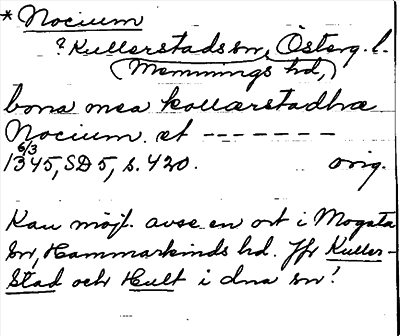 * Nocium
? Kullerstads sn, Österg. l.
(Memmings hd,)
bona mea kollærstadhæ
Nocium et -------
6/3
1345, SD 5, s. 420. orig.
Kan möjl. avse en ort i Mogata
sn, Hammarkinds hd. Jfr Kuller-
stad och Hult i dna sn!